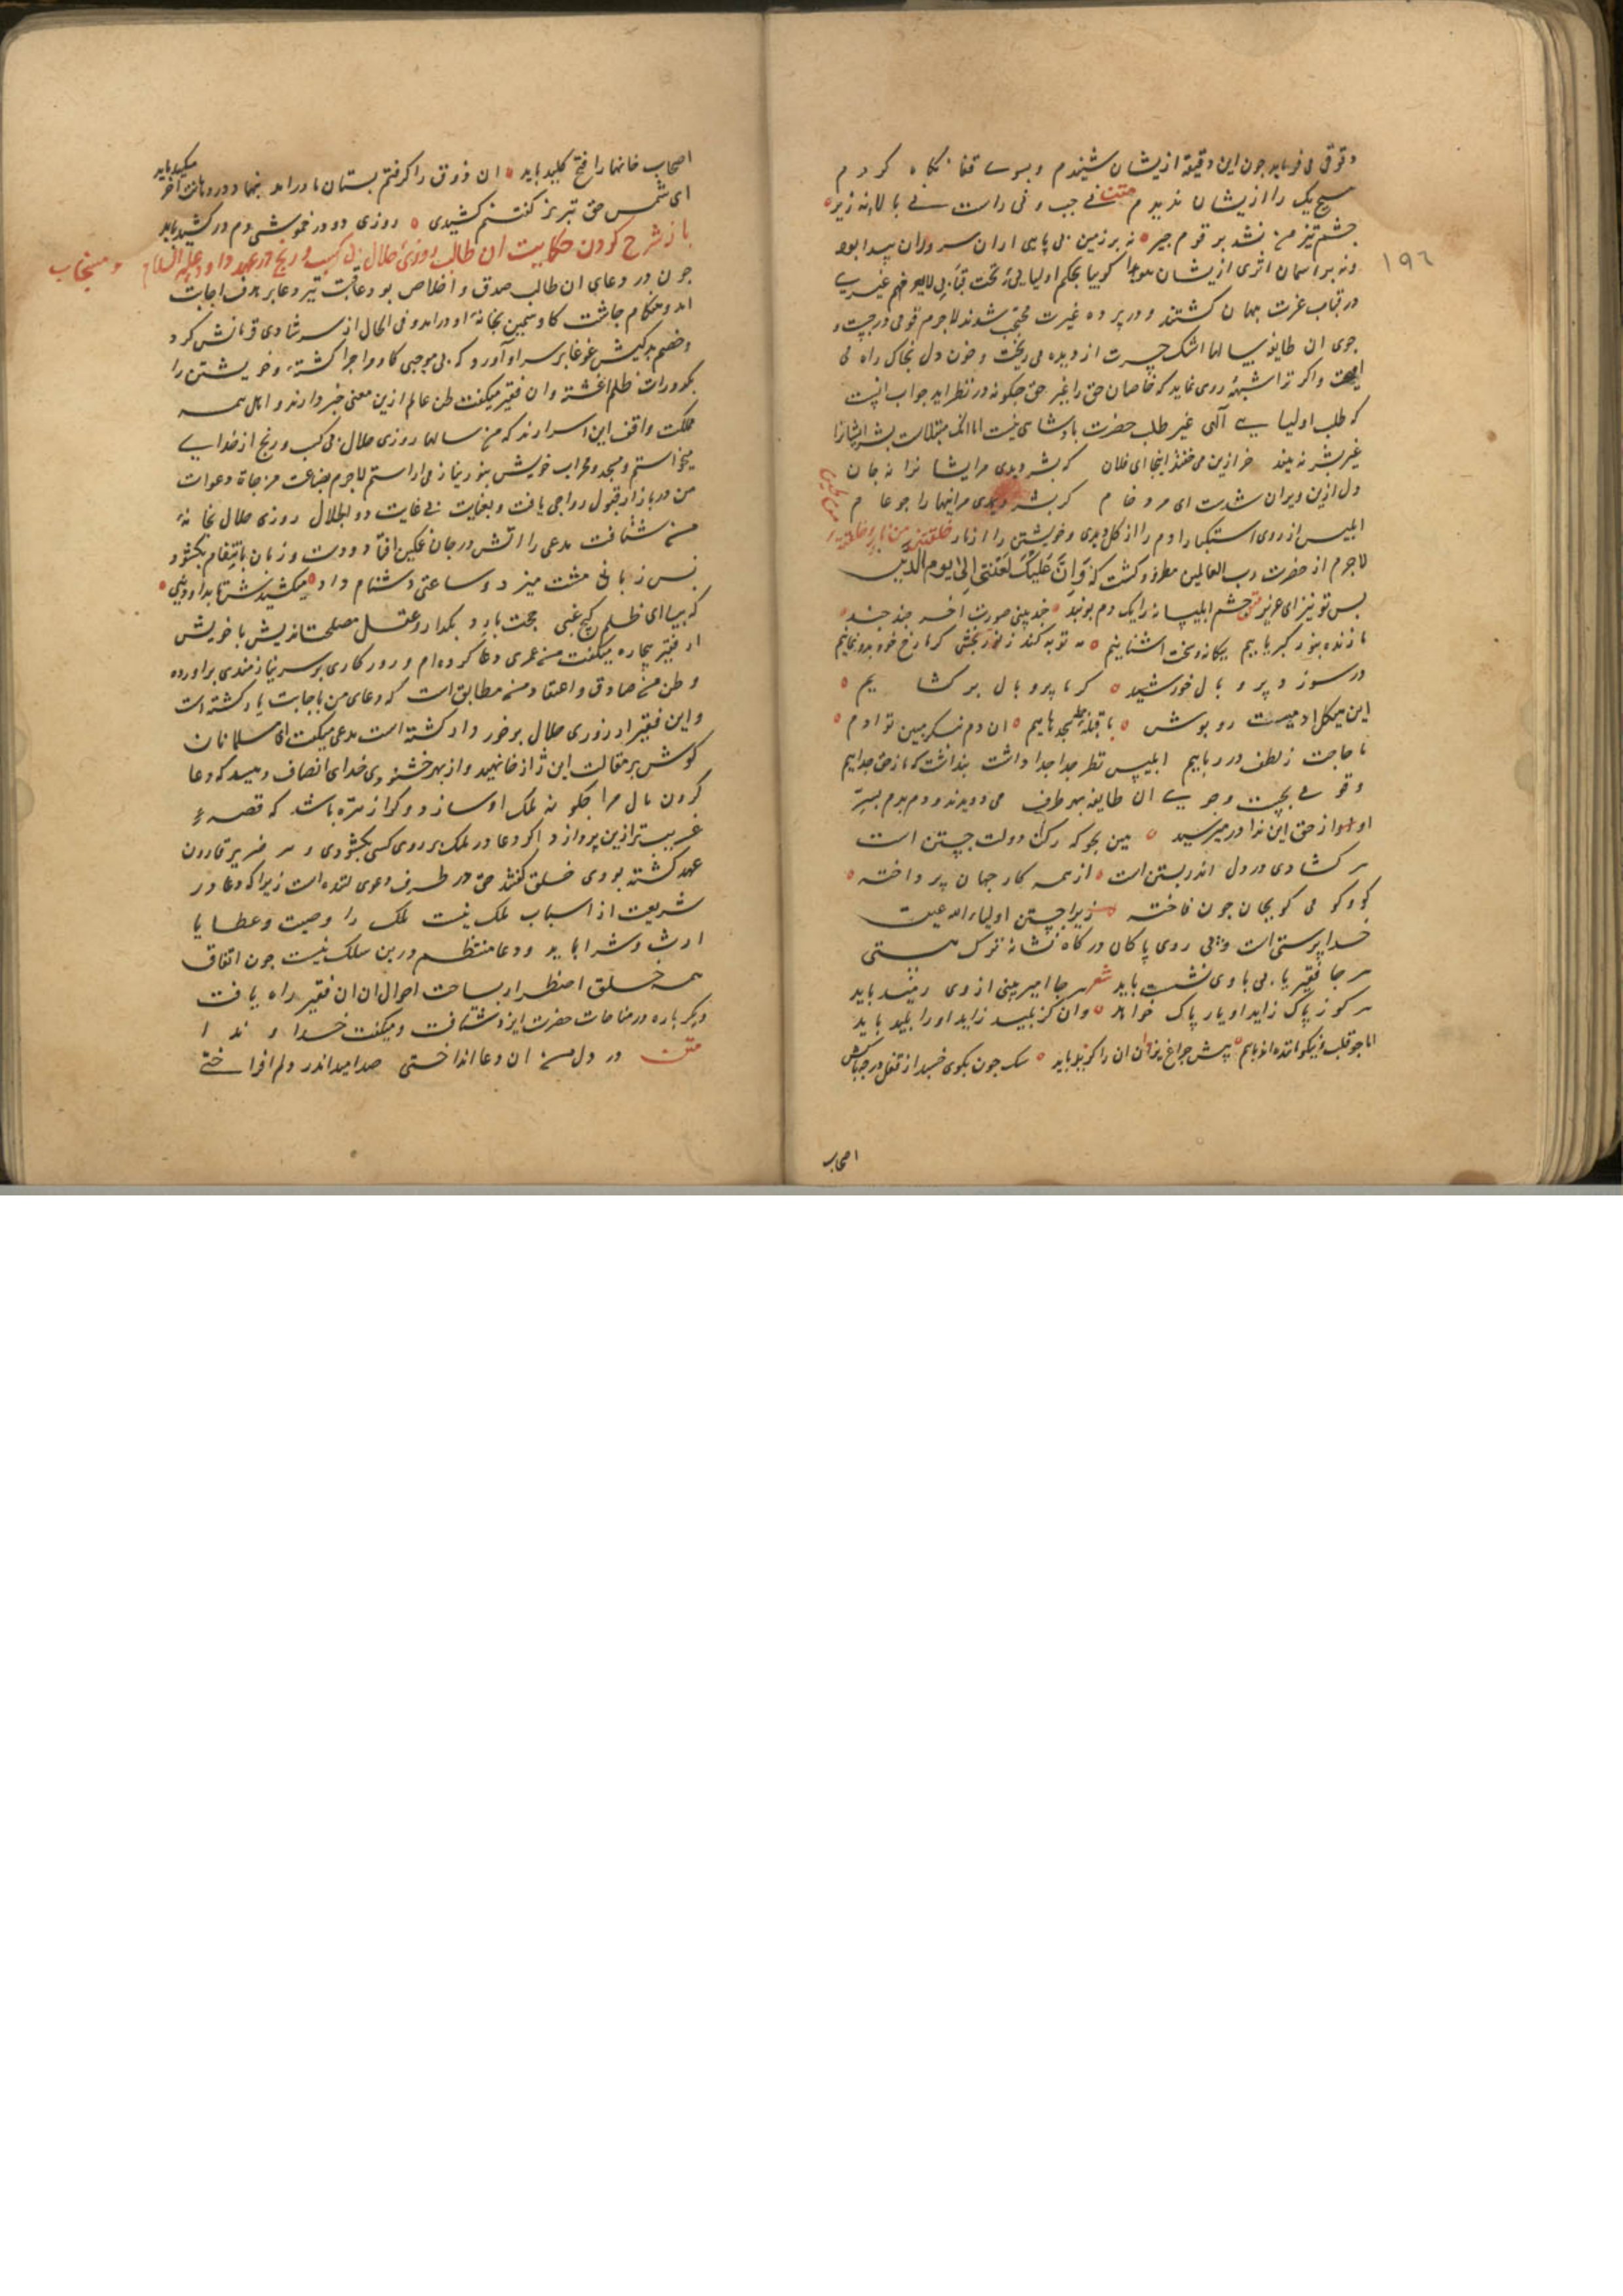 دقوقی می فرماید جون این دقیقه از یشان شنیدم و بسوے قفا نکاه کردم
هیچ یک را از یشان ندیدم متن نے جپ و نی راست نے بالا نه زیر
جشم تیز من نشد بر قوم جیر نه بر زمین بی پایی از ان سروران پیدا بود
ونه بر اسمان اثری از یشان هویدا کوییا بحکم اولیایی تحت قبابی لا یعرفهم غیرے
در قباب عزت نهان کشتند و در پرده غیرت محتجب شدند لاجرم دقوقی در جست و
جوی ان طایفه سالها اشک حسرت از دیده می ریخت و خون دل بخاک راه می
امیخت واکر ترا شبهۀ روی نماید که خاصان حق را غیر حق جکونه در نظر اید جواب انست
که طلب اولیاے آلهی غیر طلب حضرت پادشاهی نیست اما انکه مبتلاست بشر ایشانرا
غیر بشر نه بیند خر ازین می خفتد اینجا ای فلان که بشر دیدی مر ایشانرا نه جان
دل ازین ویران شدست ای مرد خام که بشر دیدی مر اینها را جو عام
ابلیس از روی استکبار ادم را از کل دیدی و خویشتن را از نار خلقتنی من نار و خلقته
من طین
لاجرم از حضرت رب العالمین مطرود کشت که وَاِنَّ عَلَیْکَ لَعْنَتی اِلیٰ یوم الدین
بس تو نیز ای عزیز متن جشم ابلیسانه را یک دم ببند جند بینی صورت اخر جند جند
ما زنده بنور کبریاییم بیکانه و سخت اشناییم مه توبه کند ز نور بخشی کر ما رخ خود بدو نماییم
در سوزد پر و بال خورشید کر ما پر و بال بر کشاییم
این هیکل ادمیست روپوش ما قبلۀ جمله سجده هاییم ان دم بنکر مبین تو ادم
تا جانت ز لطف در رباییم ابلیس نظر جدا جدا داشت بنداشت که ما ز حق جداییم
دقوقی بجست و جوے ان طایفه بهر طرف می دویدند و دم بدم بسر
او از حق این ندا در میرسید هین بجو که رکن دولت جستن است
هر کشادی در دل اندر بستن است از همه کار جهان پرداخته
کو و کو می کو بجان جون فاخته زیرا جستن اولیاء الله عین
خدا پرستی است و بی روی پاکان درکاه نشانۀ ترک هستی
هر جا فقیر یابی با وی نشست باید شعر هر جا امیر بینی از وی رمید باید
هر کو ز پاک زاید او یار پاک خواهد وان کز پلید زاید او را پلید باید
پیش جراغ یزدان ان را کزید باید سک جون بکوی خسبد از قفل در جه باکش
اصحاب
١٩٦
اصحاب خانها را فتح کلید باید ان ذوق را کرفتم پستان مادر امد بنهاد در دهانت اخر مکید باید
ای شمس حق تبریز کفتنم کشیدی روزی دو در خموشی دم در کشید باید
باز شرح کردن حکایت ان طالب روزی حلال بی کسب و رنج در عهد داود علیه السلام و مستجاب
جون در دعای ان طالب صدق و اخلاص بود عاقبت تیر دعا بر هدف اجابت
امد و هنکام جاشت کاو سمین بخانۀ او در امد و فی الحال از سر شادی قربانش کرد
و خصم بدکیش غوغا بر سر او آورد که بی موجبی کاو مرا جرا کشتۀ و خویشتن را
بکدورات ظلم اغشته و ان فقیر میکفت طن عالم ازین معنی خبر دارند و اهل همه
مملکت واقف این اسرارند که من سالها روزی حلال بی کسب و رنج از خدای
میخواستم و مسجد و محراب خویش بنور نیاز می اراستم لاجرم بضاعت مزجاة دعوات
من در بازار قبول رواجی یافت و بعنایت بی غایت ذو الجلال روزی حلال بخانۀ
من شتافت مدعی را اتش در جان غمکین افتاد و دست و زبان بانتقام بکشود
بس زبانی مشت میزد و ساعتی دشنام داد میکشیدش تا بداود نبی
که بیا ای ظالم کیج غبی حجت بارد بکدار و عقل مصلحت اندیش با خویش
ار فقیر بیچاره میکفت من عمری دعا کرده ام و روزکاری بر سر نیازمندی براورده
و ظن من صادق و اعتقاد من مطابق است که دعای من باجابت یار کشته است
واین فقیر از روزی حلال برخوردار کشته است مدعی میکفت ای مسلمانان
کوش بر مقالت این ژاژ خا نهید و از بهر خشنودی خدای انصاف دهید که دعا
کردن مال مرا جکونه ملک او سازد و کواژ متره باشد که قصۀ
غریب تر ازین پردازد اکر دعا در ملک بر روی کسی بکشودی و هر ضریر قارون
عهد کشته بودی خلق کفتند حق در طرف دعوی کننده است زیرا که دعا در
شریعت از اسباب ملک نیست ملک را وصیت و عطایا
ارث و شرا باید و دعا منتظم درین سلک نیست جون اتفاق
همه خلق اضطرار بساحت احوال ان فقیر راه یافت
دیکر باره در مناجات حضرت ایزد شتافت و میکفت خداوندا
متن در دل من ان دعا انداختی صد امید اندر دلم افراختی